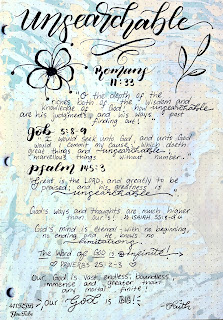 unsearchable
Romans
11:33
"O the depth of the
riches both of the wisdom and
knowledge of God! how unsearchable
are his judgments, and his ways past
finding out!
Job 5:8-9
I would seek unto God, and unto God
would I commit my cause; which doeth
great things and unsearchable
marvellous things without number.
psalm 145:3
Great is the LORD, and greatly to be
praised; and his greatness is
unsearchable
God's ways and thoughts are much higher
than ours! ISAIAH 55:8-9
God's mind is eternal - with no beginning,
no ending and He knows no
limitations
The Word of GOD is infinite
PROVERBS 25:2-3
Our God is vast, endless, boundless,
immense and greater than
any finite!
our God is BIG!
YouTube
Faith